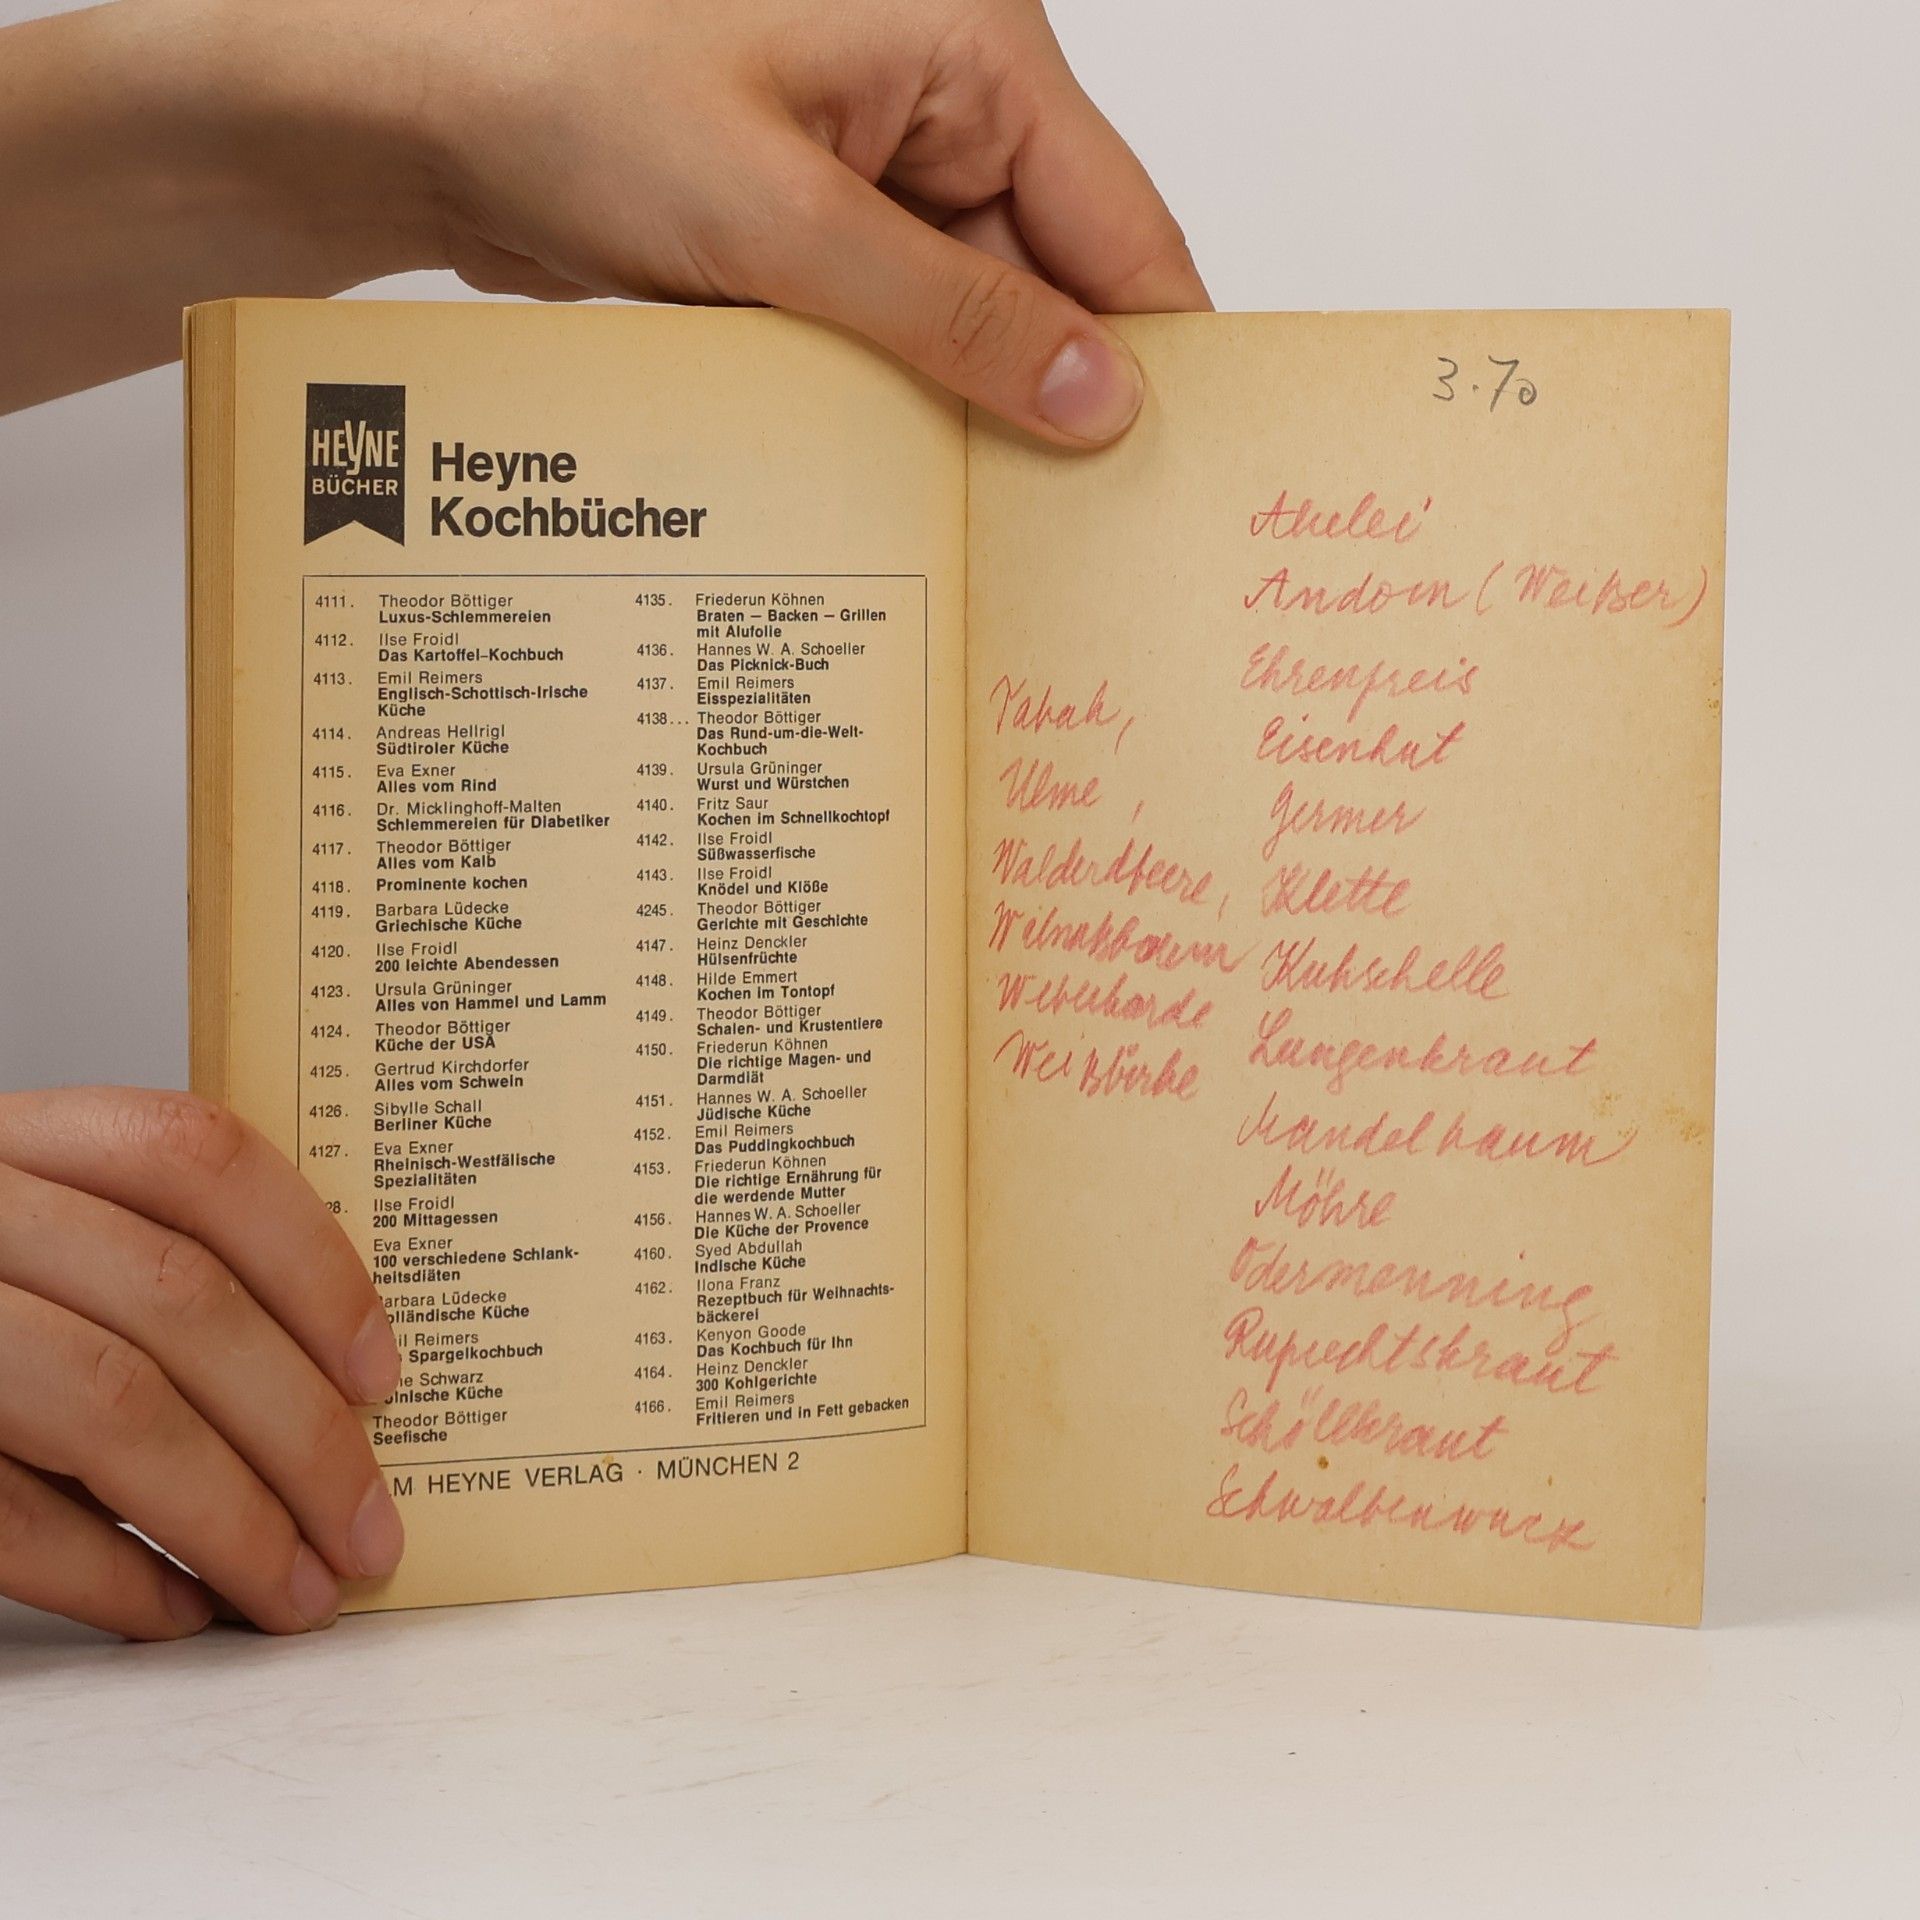 HEYNE
BÜCHER
Heyne
Kochbücher
4111. Theodor Böttiger
Luxus-Schlemmereien
4112. Ilse Froidl
Das Kartoffel–Kochbuch
4113. Emil Reimers
Englisch-Schottisch-Irische
Küche
4114. Andreas Hellrigl
Südtiroler Küche
4115. Eva Exner
Alles vom Rind
4116. Dr. Micklinghoff-Malten
Schlemmereien für Diabetiker
4117. Theodor Böttiger
Alles vom Kalb
4118. Prominente kochen
4119. Barbara Lüdecke
Griechische Küche
4120. Ilse Froidl
200 leichte Abendessen
4123. Ursula Grüninger
Alles von Hammel und Lamm
4124. Theodor Böttiger
Küche der USA
4125. Gertrud Kirchdorfer
Alles vom Schwein
4126. Sibylle Schall
Berliner Küche
4127. Eva Exner
Rheinisch-Westfälische
Spezialitäten
28. Ilse Froidl
200 Mittagessen
Eva Exner
100 verschiedene Schlank-
heitsdiäten
arbara Lüdecke
olländische Küche
il Reimers
Spargelkochbuch
ne Schwarz
olnische Küche
Theodor Böttiger
Seefische
4135. Friederun Köhnen
Braten – Backen – Grillen
mit Alufolie
4136. Hannes W. A. Schoeller
Das Picknick-Buch
4137. Emil Reimers
Eisspezialitäten
4138... Theodor Böttiger
Das Rund-um-die-Welt-
Kochbuch
4139. Ursula Grüninger
Wurst und Würstchen
4140. Fritz Saur
Kochen im Schnellkochtopf
4142. Ilse Froidl
Süßwasserfische
4143. Ilse Froidl
Knödel und Klöße
4245. Theodor Böttiger
Gerichte mit Geschichte
4147. Heinz Denckler
Hülsenfrüchte
4148. Hilde Emmert
Kochen im Tontopf
4149. Theodor Böttiger
Schalen- und Krustentiere
4150. Friederun Köhnen
Die richtige Magen- und
Darmdiät
4151. Hannes W. A. Schoeller
Jüdische Küche
4152. Emil Reimers
Das Puddingkochbuch
4153. Friederun Köhnen
Die richtige Ernährung für
die werdende Mutter
4156. Hannes W. A. Schoeller
Die Küche der Provence
4160. Syed Abdullah
Indische Küche
4162. Ilona Franz
Rezeptbuch für Weihnachts-
bäckerei
4163. Kenyon Goode
Das Kochbuch für Ihn
4164. Heinz Denckler
300 Kohlgerichte
4166. Emil Reimers
Fritieren und in Fett gebacken
LM HEYNE VERLAG · MÜNCHEN 2
3.70
Tabak,
Ulme,
Walderdbeere,
Akelei
Andorn (Weißer)
Ehrenpreis
Eisenhut
Germer
Klette
Kuhschelle
Lungenkraut
Mandelbaum
Möhre
Odermenning
Ruprechtskraut
Schöllkraut
Schwalbenwurz